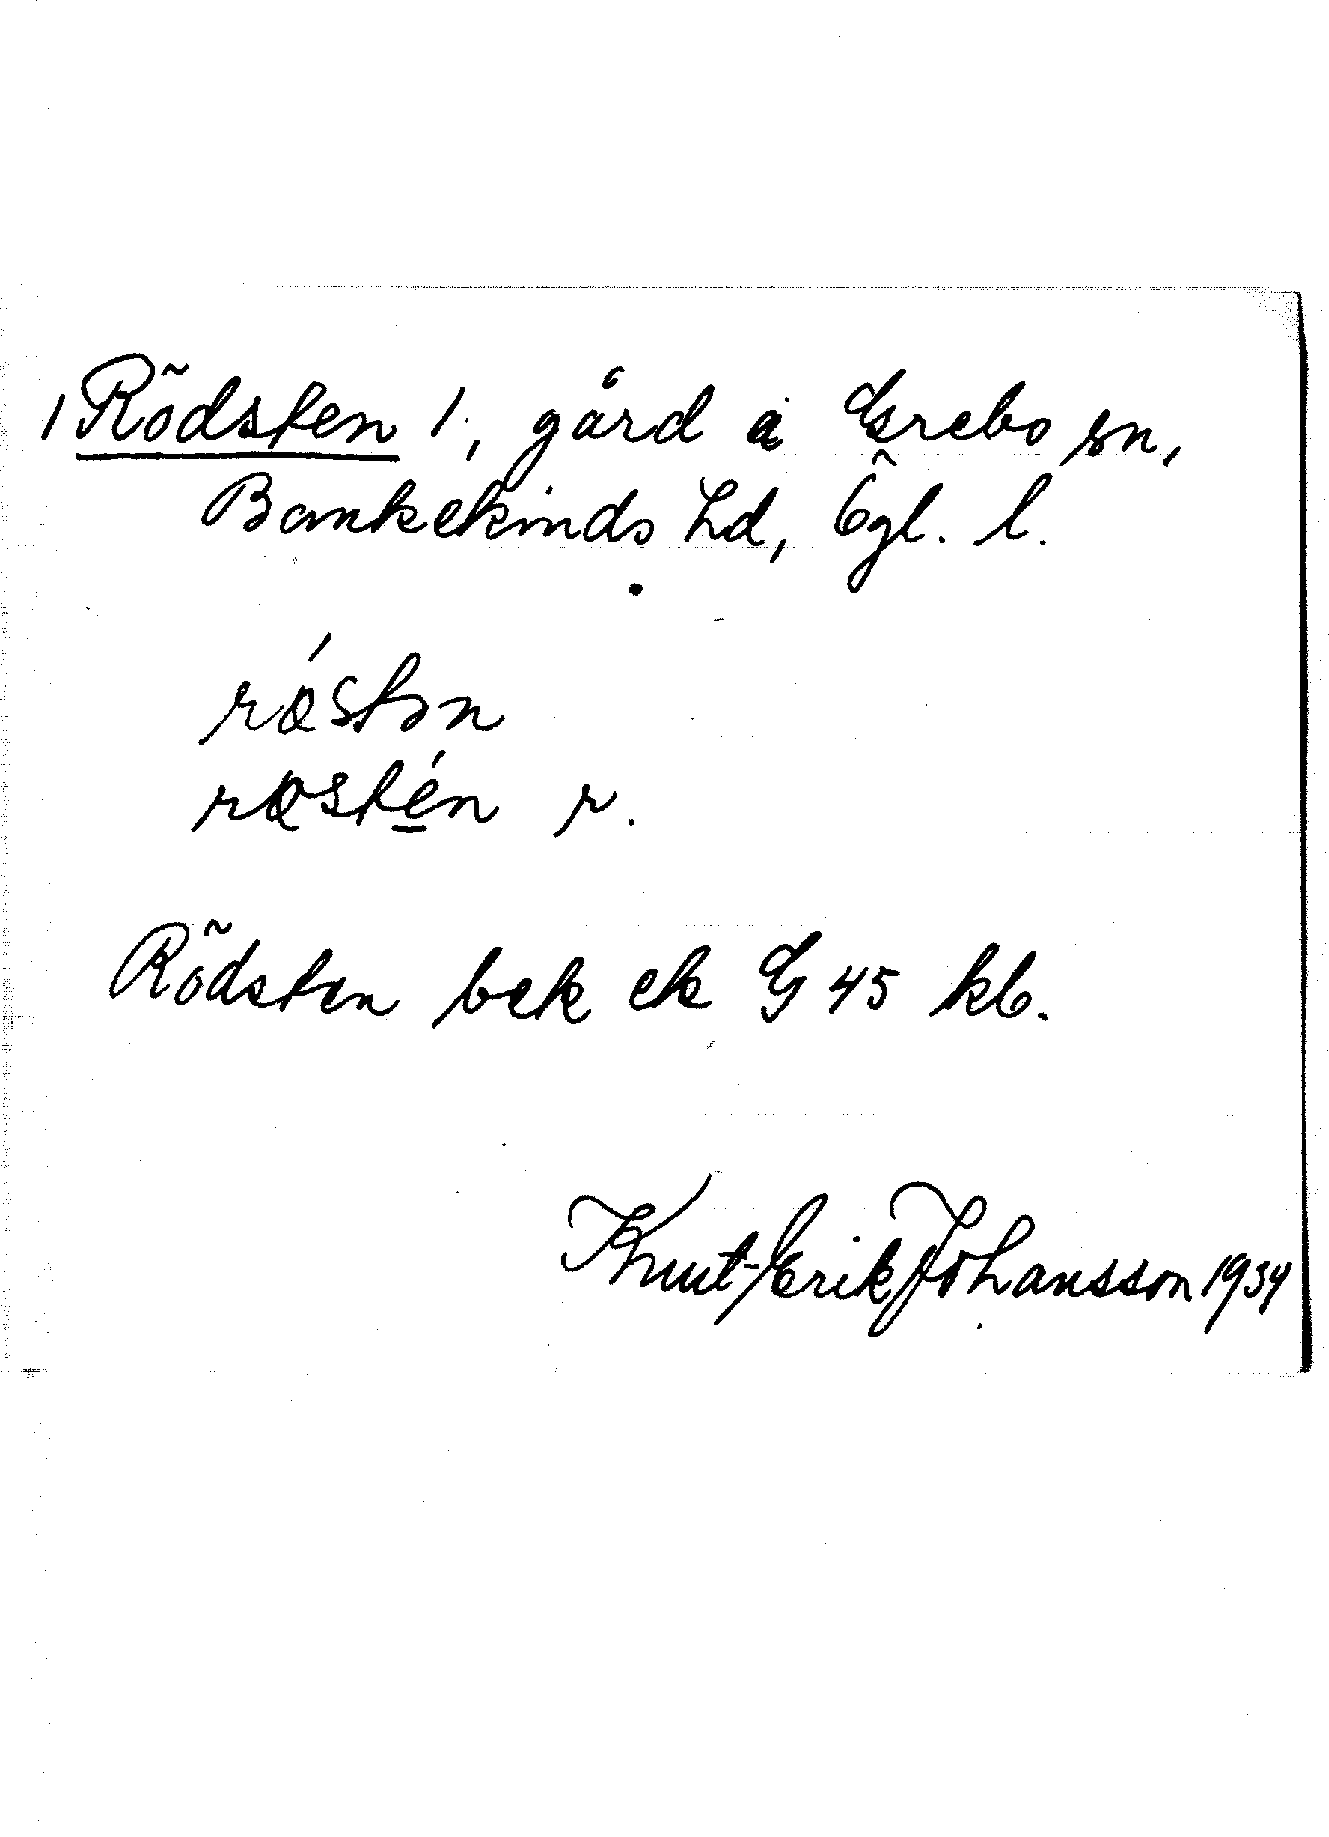 / Rödsten /, gård i Grebo sn,
Bankekinds hd, Ögl. l.
rǿstən
røstén r.
Rödsten bek ek G 45 kb.
Knut-Erik Johansson 1934